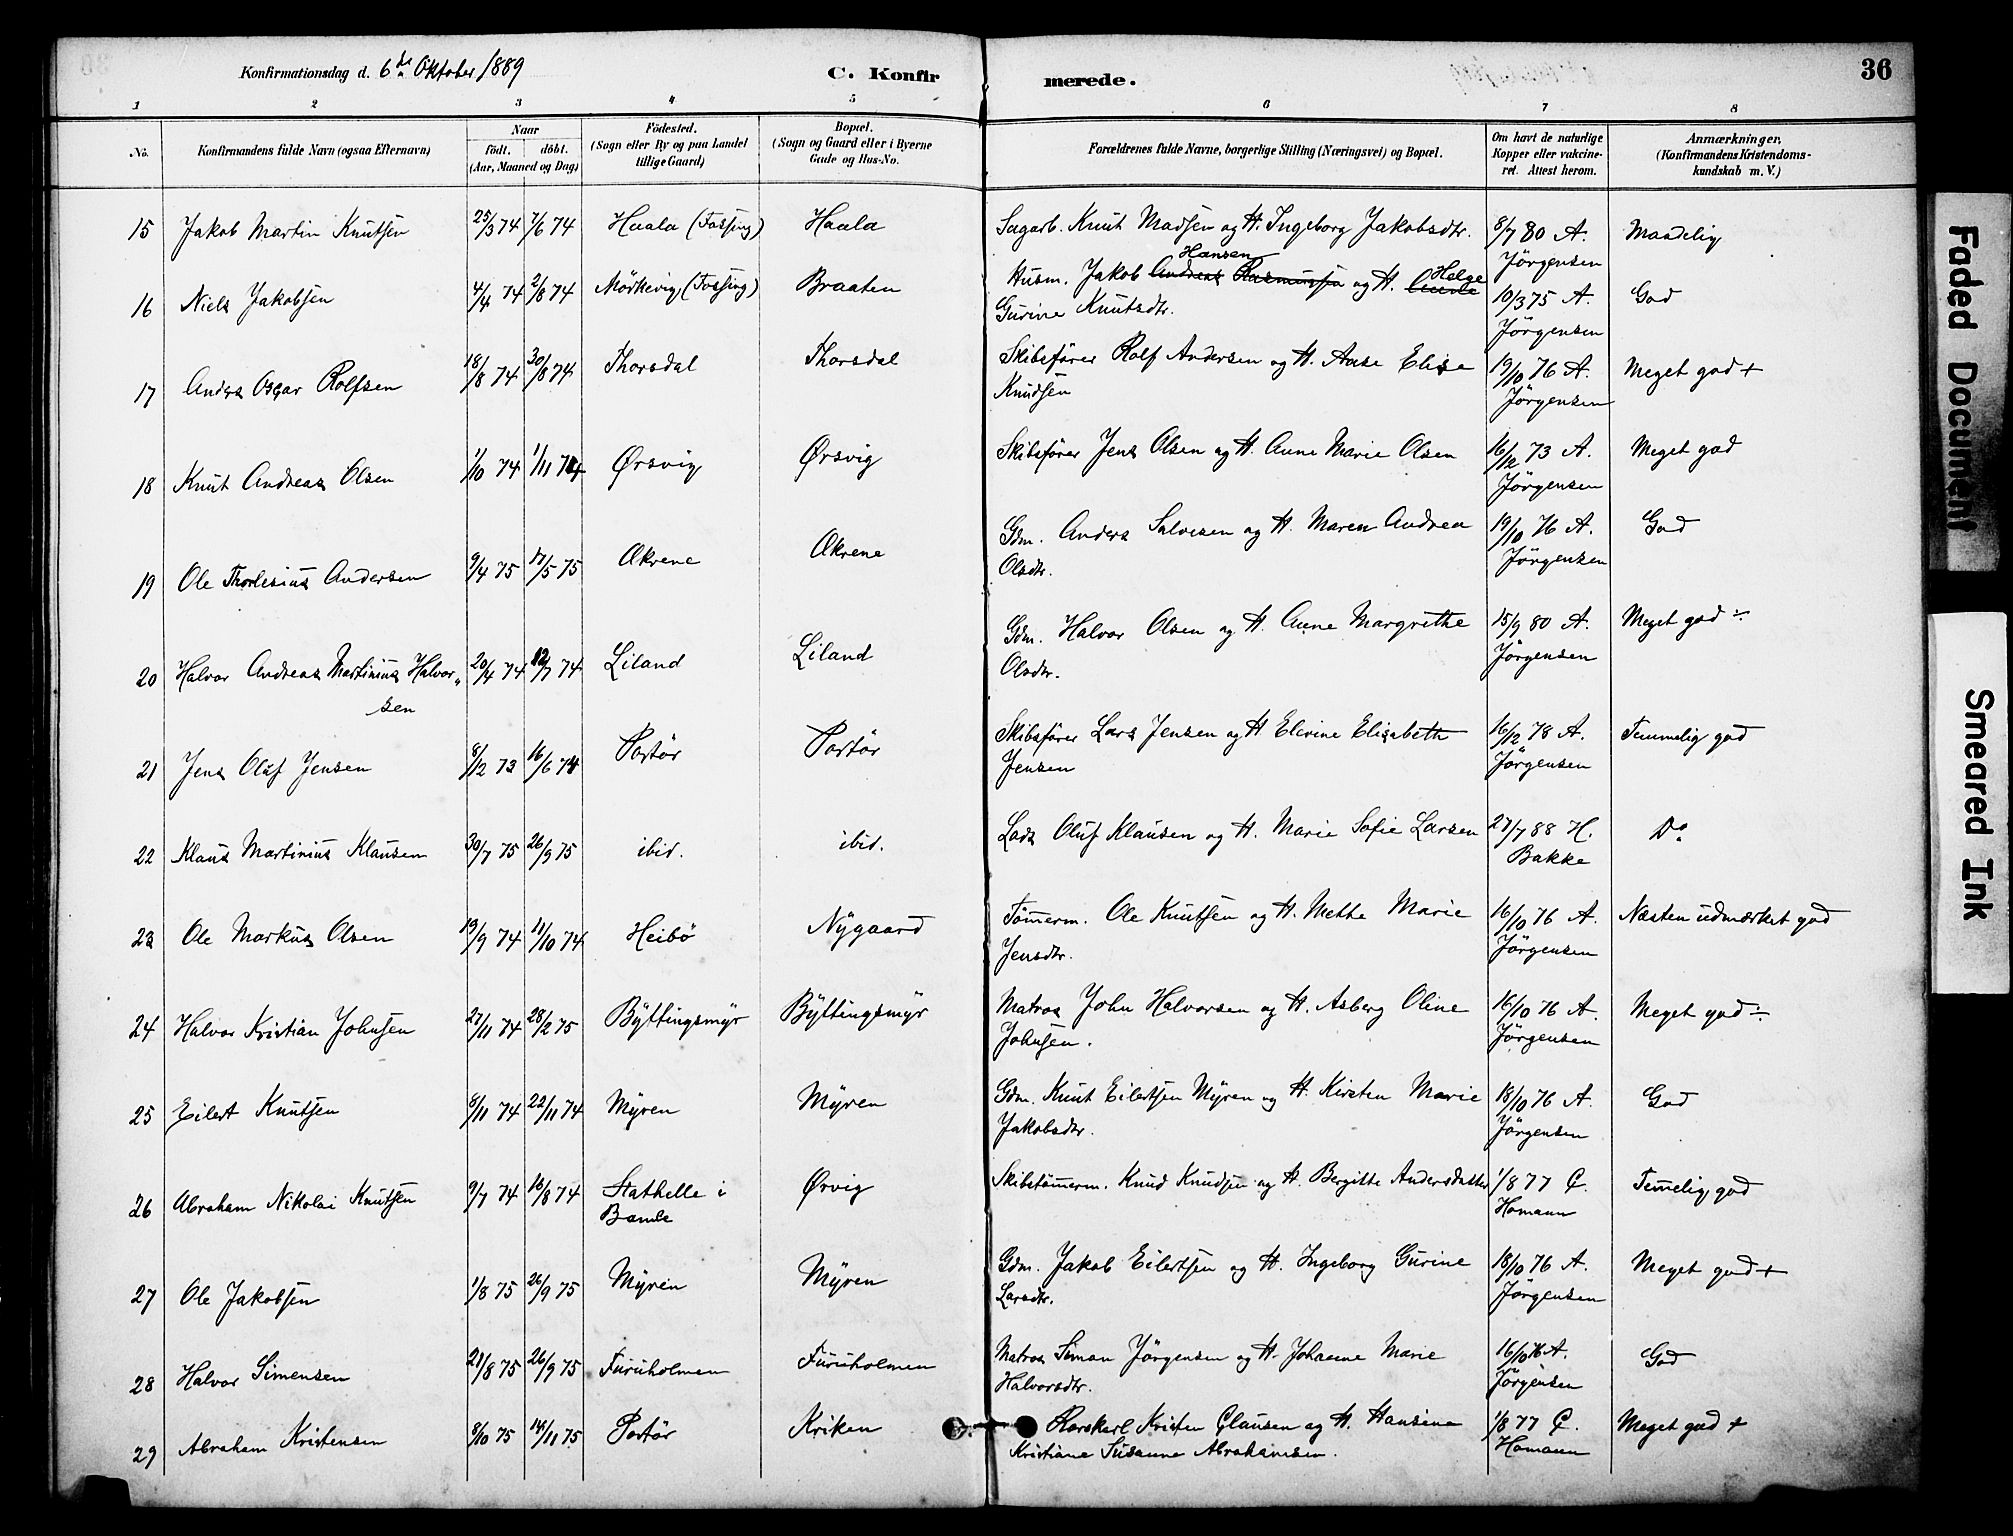 Konfirmationsdag d. 6de Oktober 1889
C. Konfirmerede.
36
1 2 3 4 5 6 7 8
No.
Konfirmandens fulde Navn (ogsaa Efternavn)
Naar
födt. döbt.
(Aar, Maaned og Dag)
Födested.
(Sogn eller By og paa Landet
tillige Gaard)
Bopæl.
(Sogn og Gaard eller i Byerne
Gade og Hus-No.
Forældrenes fulde Navne, borgerlige Stilling (Næringsvei) og Bopæl.
Om havt de naturlige
Kopper eller vakcine-
ret. Attest herom.
Anmærkninger,
(Konfirmandens Kristendoms-
kundskab m. V.)
15 Jakob Martin Knutsen 25/3 74 7/6 74 Haala (Fossing) Haala Sagarb. Knut Madsen og H. Ingeborg Jakobsdtr. 8/7 80 A. Jörgensen Maadelig
16 Niels Jakobsen 4/4 74 2/8 74 Mörkevig (Fossing) Braaten Husm. Jakob Andreas Rasmussen Hansen og H. Helge
Gurine Knutsdtr. 10/3 75 A. Jörgensen God
17 Anders Oscar Rolfsen 18/8 74 30/8 74 Thorsdal Thorsdal Skibsförer Rolf Andersen og H. Aase Elise
Knudsen 19/10 76 A. Jörgensen Meget god +
18 Knut Andreas Olsen 1/10 74 1/11 74 Ørsvig Ørsvig Skibsförer Jens Olsen og H. Anne Marie Olsen 16/12 73 A. Jörgensen Meget god
19 Ole Thorlesius Andersen 9/4 75 17/5 75 Økrene Økrene Gdm. Anders Salvesen og H. Maren Andrea
Olsdtr. 19/10 76 A. Jörgensen God
20 Halvor Andreas Martinius Halvor„
sen 20/4 74 12/7 74 Liland Liland Gdm. Halvor Olsen og H. Anne Margrethe
Olsdtr. 15/9 80 A. Jörgensen Meget god ÷
21 Jens Oluf Jensen 8/12 73 16/6 74 Portör Portör Skibsförer Lars Jensen og H Elevine Elisabeth
Jensen 16/12 78 A. Jörgensen Temmelig god
22 Klaus Martinius Klausen 30/7 75 26/9 75 ibid. ibid. Lods Oluf Klausen og H. Marie Sofie Larsen 27/7 88 H. Bakke Do
23 Ole Markus Olsen 19/9 74 11/10 74 Heibö Nygaard Tömerm. Ole Knutsen og H. Mette Marie
Jensdtr. 16/10 76 A. Jörgensen Næsten udmærket god
24 Halvor Kristian Johnsen 27/11 74 28/2 75 Byttingsmyr Byttingsmyr Matros John Halvorsen og H. Asberg Oline
Johnsen. 16/10 76 A. Jörgensen Meget god ÷
25 Eilert Knutsen 8/11 74 22/11 74 Myren Myren Gdm. Knut Eilertsen Myren og H. Kirsten Marie
Jakobsdtr. 18/10 76 A. Jörgensen God
26 Abraham Nikolai Knutsen 9/7 74 16/8 74 Stathelle i
Bamle Ørvig Skibstömerm. Knud Knudsen og H. Bergitte Andersdatter 1/8 77 C. Homann Temelig god
27 Ole Jakobsen 1/8 75 26/9 75 Myren Myren Gdm. Jakob Eilertsen og H. Ingeborg Gurine
Larsdtr. 18/10 76 A. Jörgensen Meget god +
28 Halvor Simensen 21/8 75 26/9 75 Furuholmen Furuholmen Matros Simon Jörgensen og H. Johanne Marie
Halvorsdtr. 16/10 76 A. Jörgensen God
29 Abraham Kristensen 8/10 75 14/11 75 Portör Kriken Rorskarl Kristen Clausen og H. Hansine
Kristiane Susanne Abrahamsen. 1/8 77 C. Homann Meget god +
Faded Document
Smeared Ink